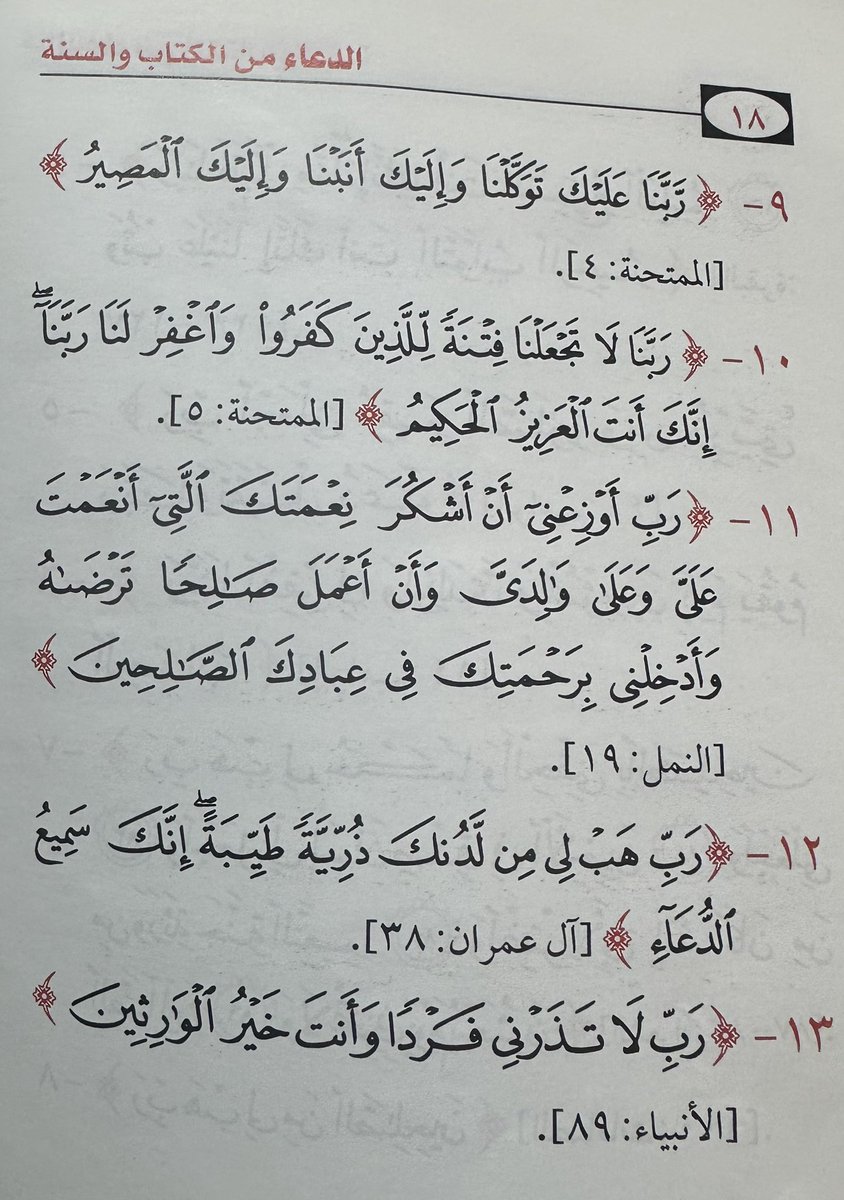 الدعاء من الكتاب والسنة
١٨
٩- ﴿ رَّبَّنَا عَلَيْكَ تَوَكَّلْنَا وَإِلَيْكَ أَنَبْنَا وَإِلَيْكَ ٱلْمَصِيرُ ﴾
[الممتحنة: ٤].
١٠- ﴿ رَبَّنَا لَا تَجْعَلْنَا فِتْنَةً لِّلَّذِينَ كَفَرُوا۟ وَٱغْفِرْ لَنَا رَبَّنَآ ۖ
إِنَّكَ أَنتَ ٱلْعَزِيزُ ٱلْحَكِيمُ ﴾ [الممتحنة: ٥].
١١- ﴿ رَبِّ أَوْزِعْنِىٓ أَنْ أَشْكُرَ نِعْمَتَكَ ٱلَّتِىٓ أَنْعَمْتَ
عَلَىَّ وَعَلَىٰ وَٰلِدَىَّ وَأَنْ أَعْمَلَ صَـٰلِحًا تَرْضَىٰهُ
وَأَدْخِلْنِى بِرَحْمَتِكَ فِى عِبَادِكَ ٱلصَّـٰلِحِينَ ﴾
[النمل: ١٩].
١٢- ﴿ رَبِّ هَبْ لِى مِن لَّدُنكَ ذُرِّيَّةً طَيِّبَةً ۖ إِنَّكَ سَمِيعُ
ٱلدُّعَآءِ ﴾ [آل عمران: ٣٨].
١٣- ﴿ رَبِّ لَا تَذَرْنِى فَرْدًا وَأَنتَ خَيْرُ ٱلْوَٰرِثِينَ ﴾
[الأنبياء: ٨٩].